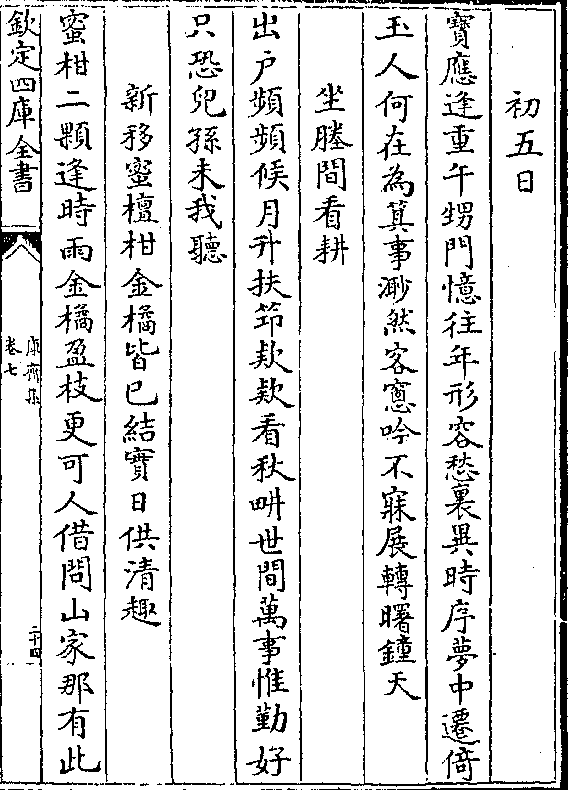 初五日
寶應逢重午甥門憶往年形容愁裏異時序夢中遷倚
玉人何在為箕事渺然客窻吟不寐展轉曙鐘天
坐塍間看耕
出户頻頻候月升扶笻欵欵看秋畊世間萬事惟勤好
只恐兒孫未我聽
新移蜜檀柑金橘皆已結實日供清趣
蜜柑二顆逢時雨金橘盈枝更可人借問山家那有此
欽定四庫全書
康齋集
卷七
二十四